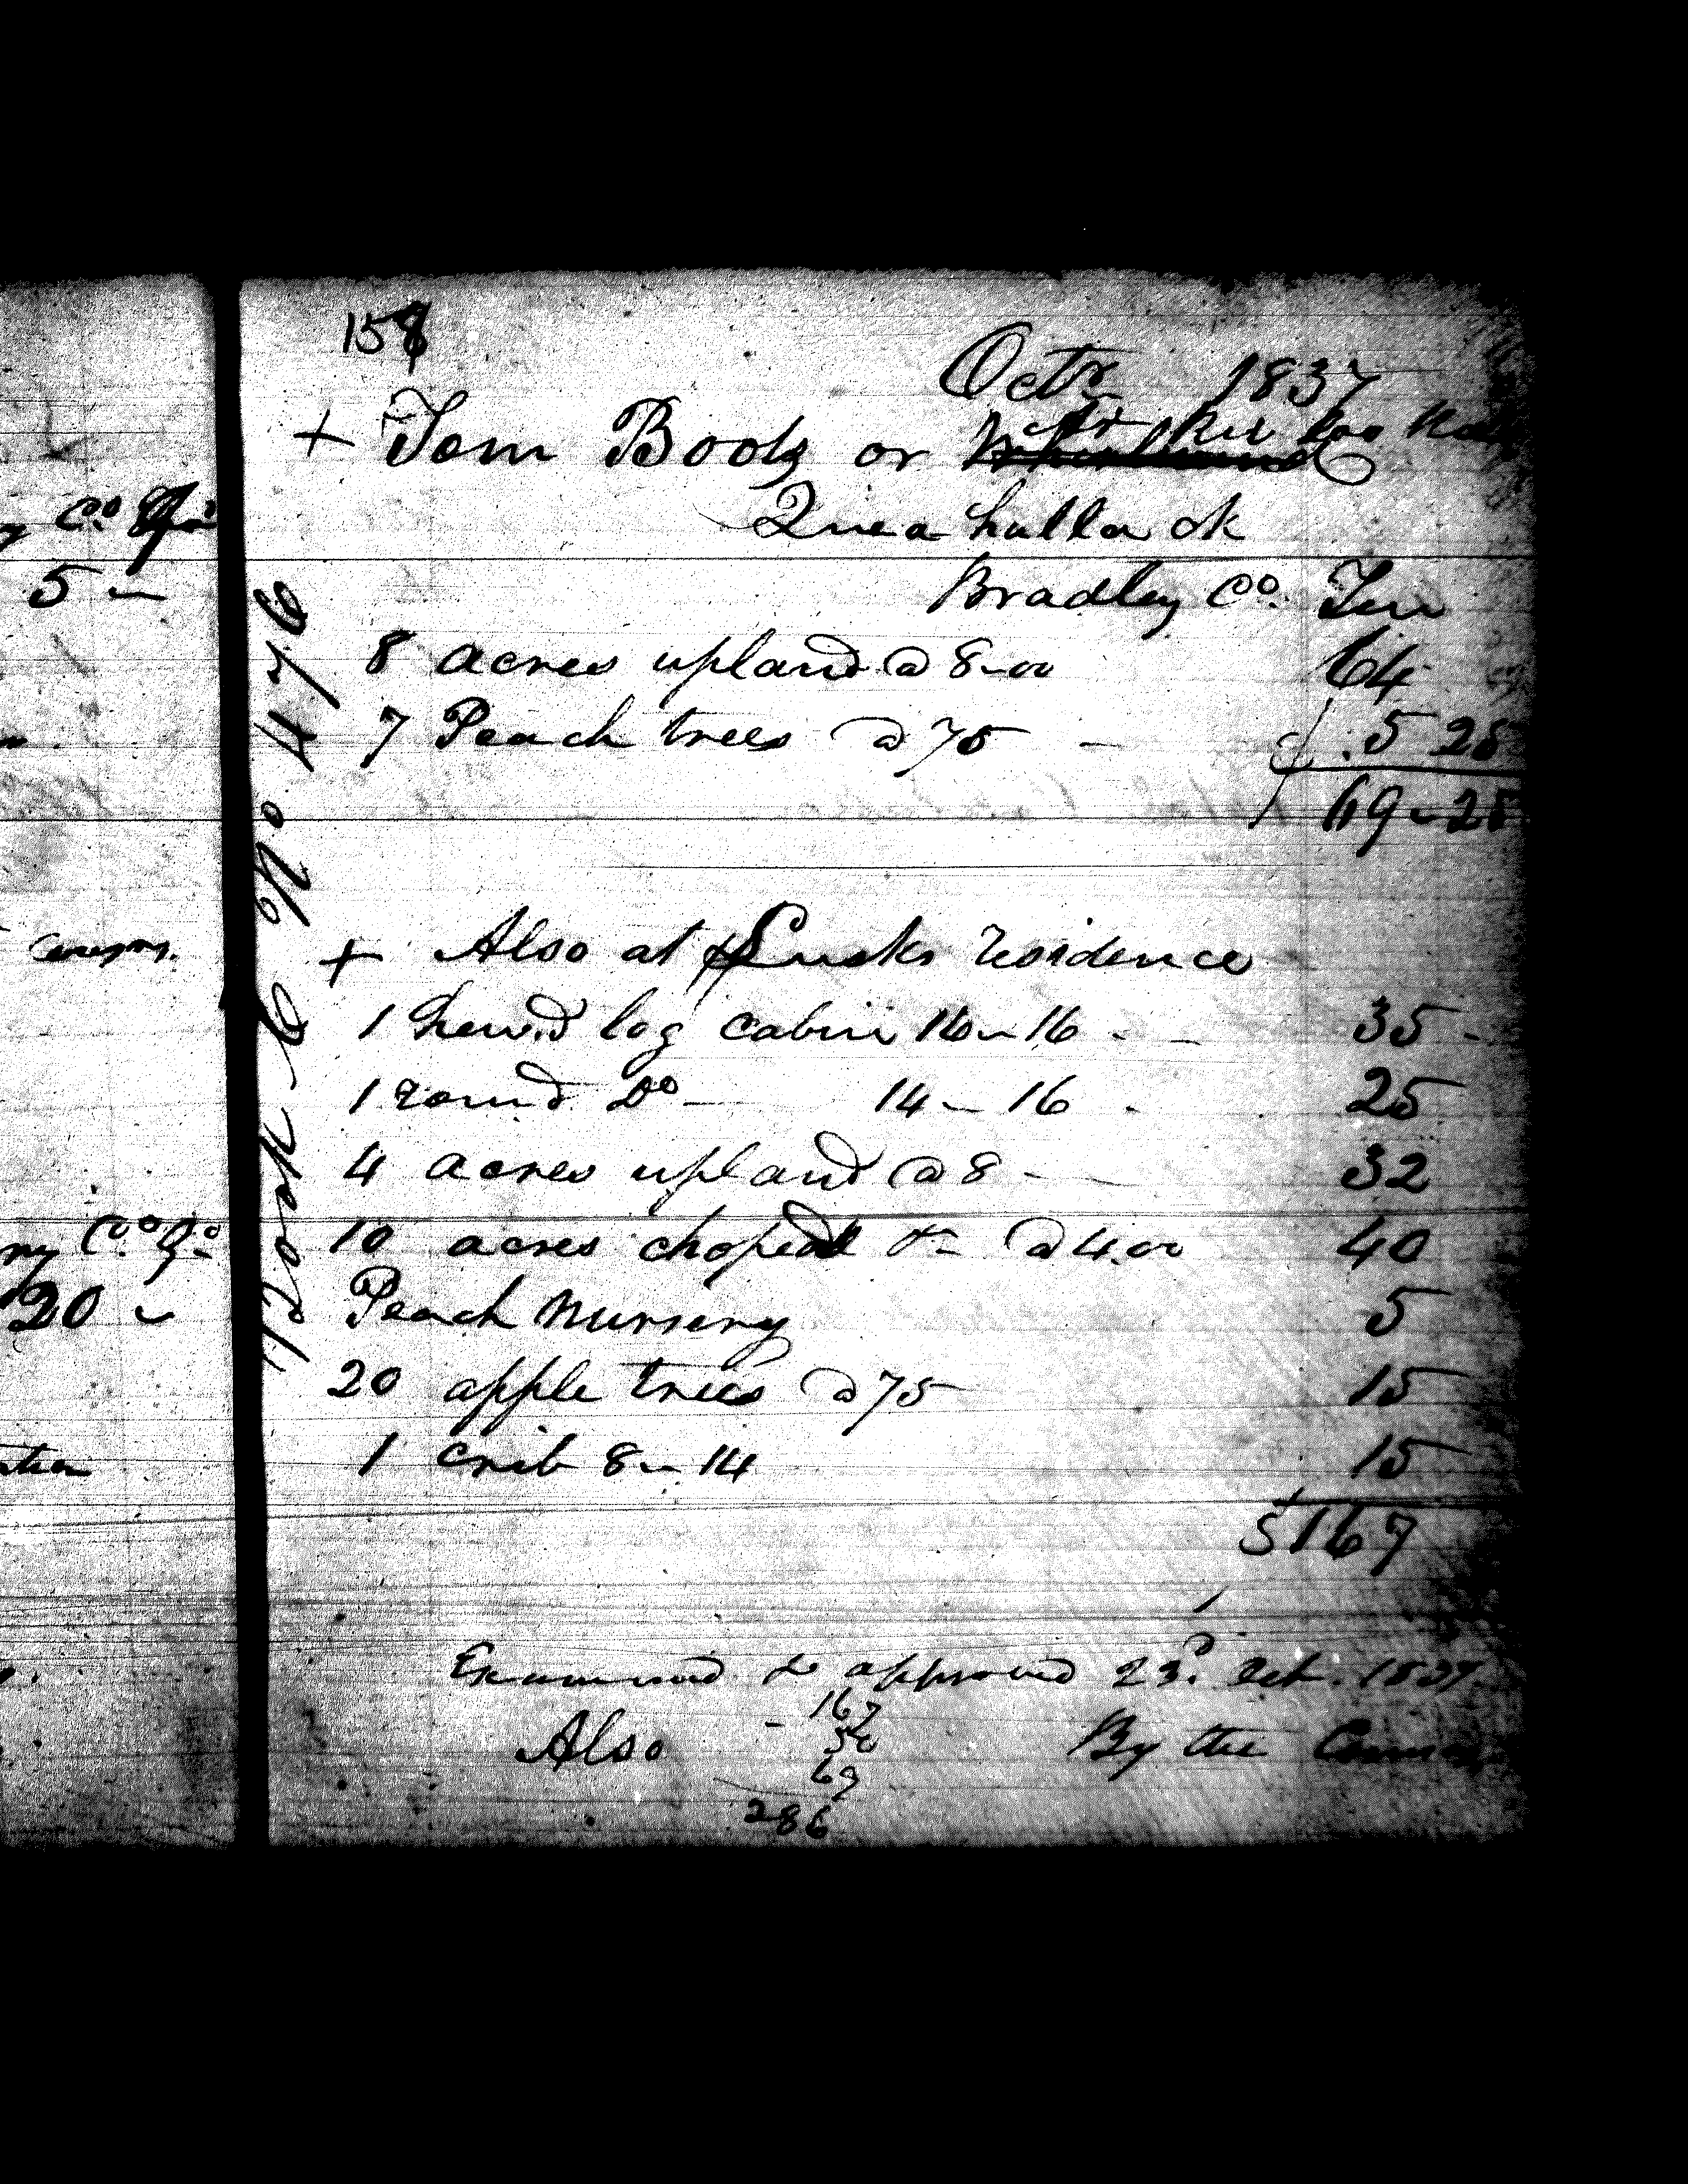 158
Octr 1837
+ Tom Books or
Quea hulla ck
Bradley Co. Ten
8 acres upland @ 8-00 64
7 Peach trees @ 75 - 5 25
69-25
+ Also at Lusks residence
1 hewd log cabin 16-16 - - 35 -
1 round Do - 14-16 - 25
4 acres upland @ 8 - - 32
10 acres choped &- @ 4.00 40
Peach nursery 5
20 apple trees @ 75 15
1 crib 8-14 15
$167
Examined & approved 23d. Oct. 1837
Also By the
167
50
69
286
Book C No 476
5 -
20 -